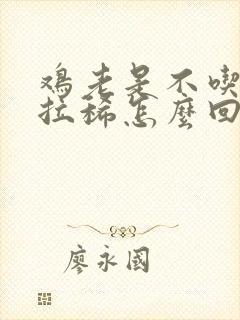 鸡老是不喫
拉稀怎麼回
廖永國